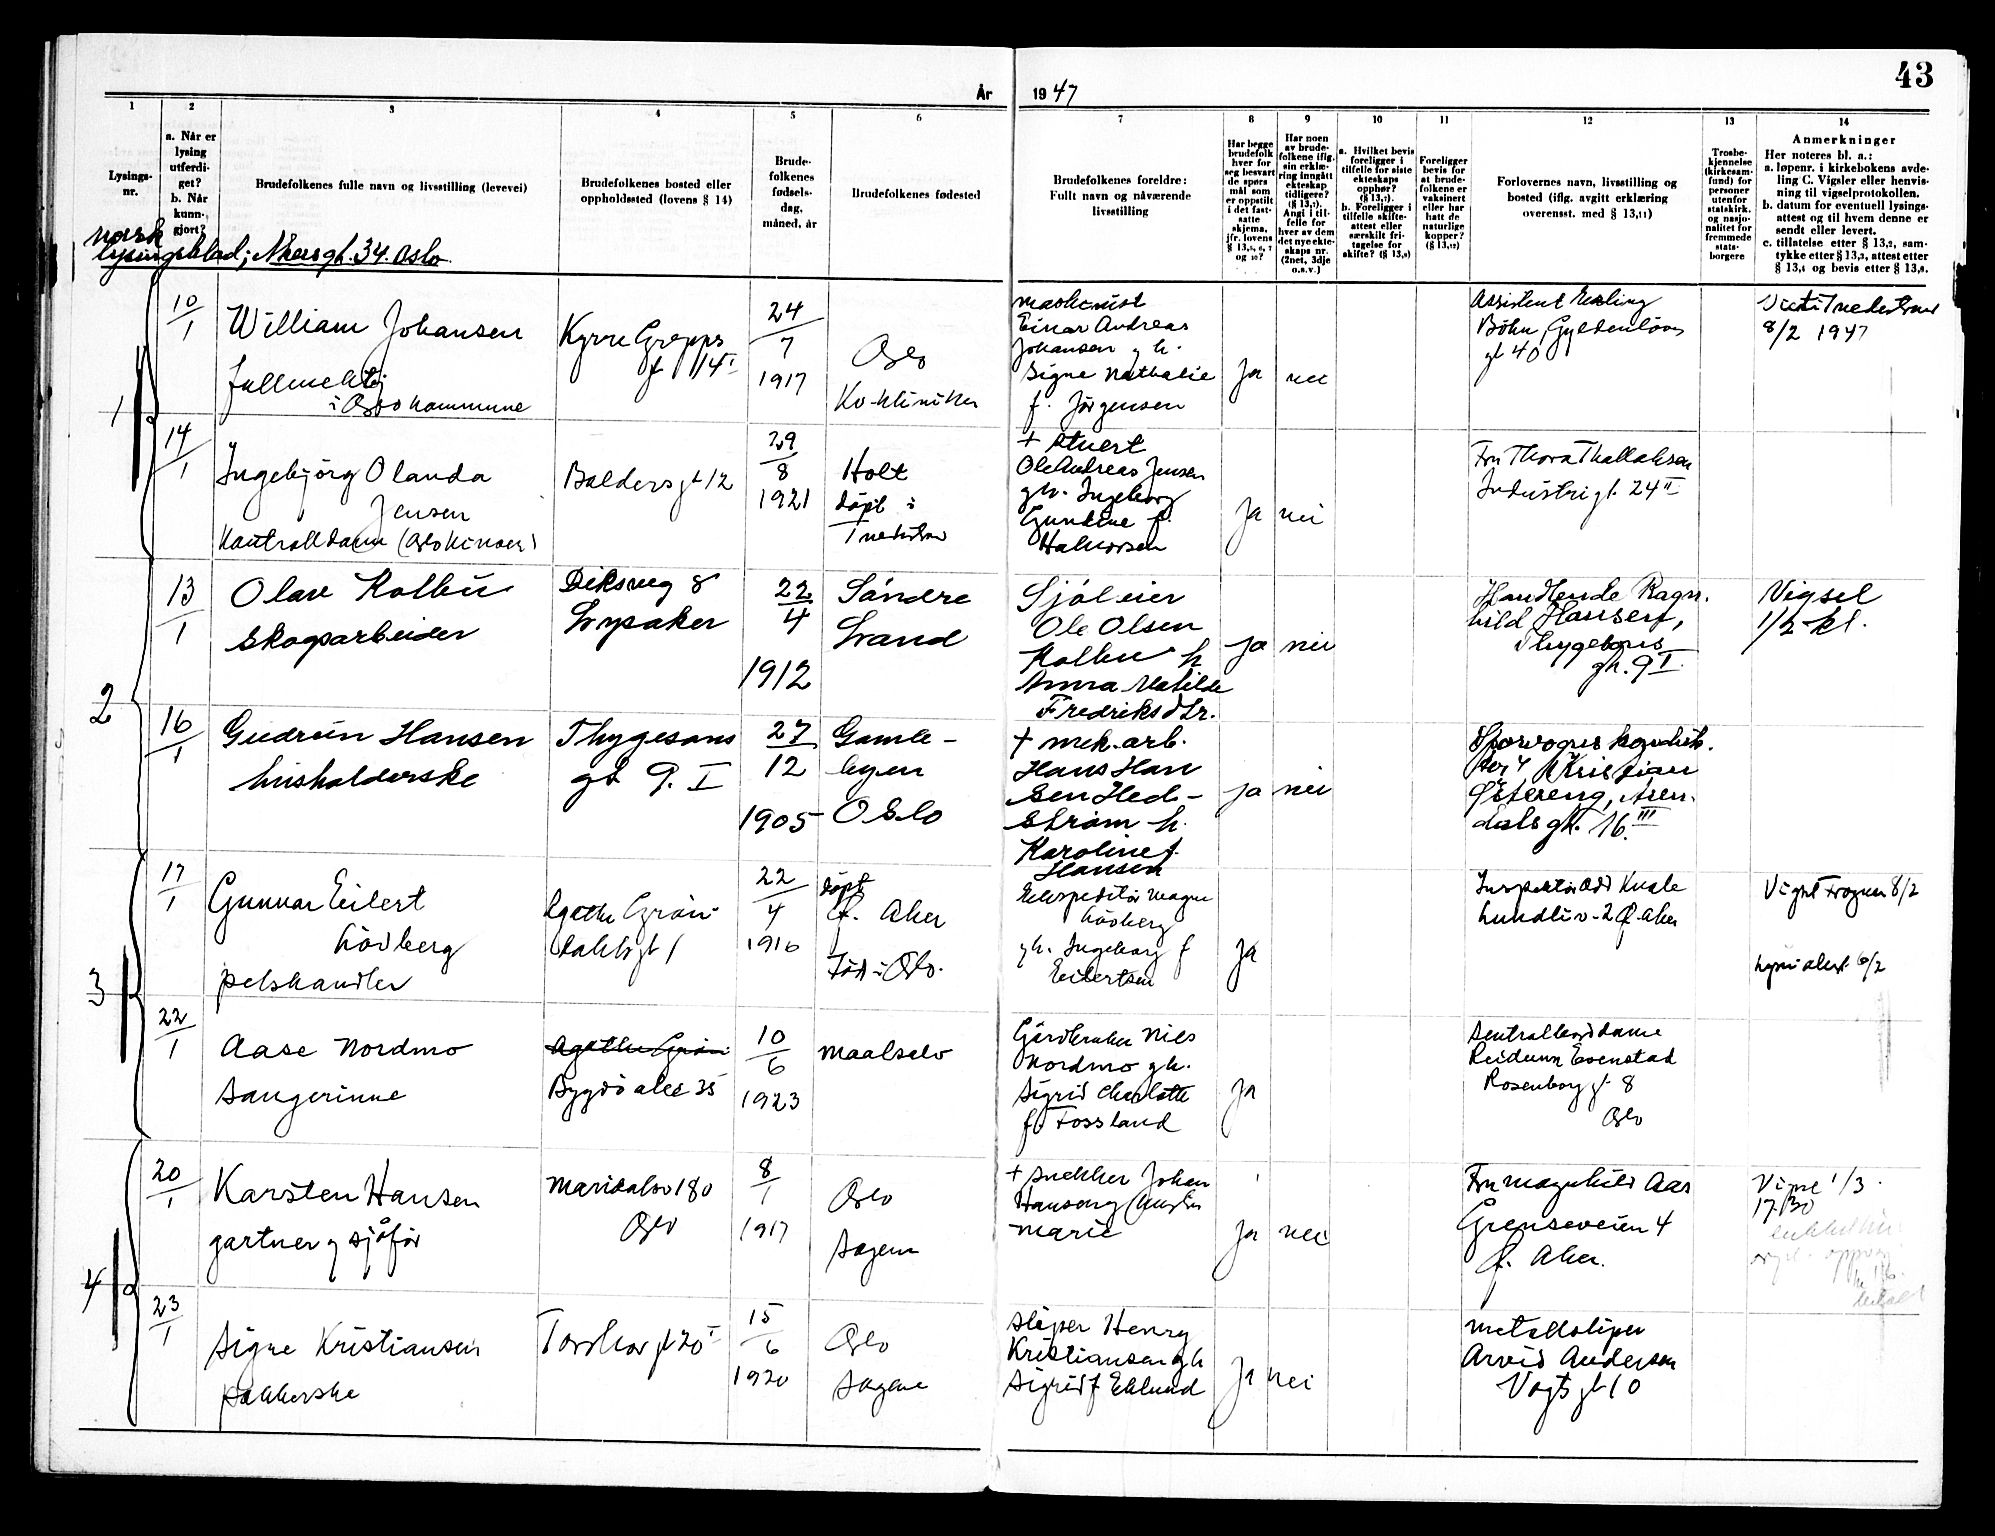 43
År
1947
1
2
3
4
5
6
7
8
9
10
11
12
13
14
Lysings-
nr.
a. Når er
lysing
utferdi-
get?
b. Når
kunn-
gjort?
Brudefolkenes fulle navn og livsstilling (levevei)
Brudefolkenes bosted eller
oppholdssted (lovens § 14)
Brude-
folkenes
fødsels-
dag,
måned, år
Brudefolkenes fødested
Brudefolkenes foreldre:
Fullt navn og nåværende
livsstilling
Har begge
brudefolk
hver for
seg besvart
de spørs
mål som
er oppstilt
i det fast-
satte
skjema,
jfr. lovens
§ 13,5, 6, 7
og 10?
Har noen
av brude-
folkene iflg.
sin erklæ-
ring inngått
ekteskap
tidligere?
(§ 13,7).
Angi i til-
felle for
hver av dem
det nye ekte-
skaps nr.
(2net, 3dje
o.s.v.)
a. Hvilket bevis
foreligger i
tilfelle for siste
ekteskaps
opphør?
(§ 13,7)
b. Foreligger i
tilfelle skifte-
attest eller
særskilt fri-
tagelse for
skifte? (§ 13,8)
Foreligger
bevis for
at brude-
folkene er
vaksinert
eller har
hatt de
naturlige
kopper?
(§ 13,12)
Forlovernes navn, livsstilling og
bosted (iflg. avgitt erklæring
overensst. med § 13,11)
Trosbe-
kjennelse
(kirkesam-
fund) for
personer
utenfor
statskirk.
og nasjo-
nalitet for
fremmede
stats-
borgere
Anmerkninger
Her noteres bl. a.:
a. løpenr. i kirkebokens avde-
ling C. Vigsler eller henvis-
ning til vigselprotokollen.
b. datum for eventuell lysings-
attest og til hvem denne er
sendt eller levert.
c. tillatelse etter § 13,2, sam-
tykke etter § 13,3, attest etter
§ 13,4 og bevis etter § 13,8.
norsk
lysingsblad; Akersgt. 34. Oslo
1
10/1
William Johansen
fullmektig
i Oslo kommune
Kyrre Grepps
gt 14 I
24/7
1917
Oslo
Kv-klinikken
maskinist
Einar Andreas
Johansen g h.
Signe Nathalie
f. Jörgensen
Ja
nei
Assistent Erling
Böhn, Gyldenlöves
gt 40
8/2 1947
14/1
Ingebjörg Olanda
Jensen
Kontrolldame (Oslo Kinoer)
Balders gt 12
29/8
1921
Holt
döpt i
Tvedestrand
+ Stuert
Ole Andreas Jensen
gh. Ingeborg
Gundine f.
Halvorsen
Ja
nei
Fru Thora Thallaksen
Industrigt. 24 II
2
13/1
Olav Kolbu
skogsarbeider
Diksveg 8
Lysaker
22/4
1912
Söndre
Land
Sjöleier
Ole Olsen
Kolbu h
Anna Matilde
Fredriksdtr.
ja
nei
Handlende Ragn.
hild Hansen,
Thygesons
gt. 9 I.
Vigsel
1/2 kl.
16/1
Gudrun Hansen
husholderske
Thygesons
gt 9. I
27/12
1905
Gamle-
byen
Oslo
+ mek. arb.
Hans Han
sen Hed-
ström h.
Karoline f.
Hansen
ja
nei
Sporvogns konduk.
tör, Kristian
Østereng, Aren.
dals gt. 16. III
3
17/1
Gunnar Eilert
Lövberg
pelshandler
Agathe Gröndahls gt 1
22/4
1916
döpt
Ö. Aker
född i Oslo.
Ekspeditör Magne
Lövberg
gh. Ingeborg f
Eilertsen
Ja
Inspektör Odd Kvale
Lundliv. 2 Ö. Aker
Vigsel Frogner 8/2
lysn attest 6/2
22/1
Aase Nordmo
Sangerinne
Agathe Grön
Bygdö alle 35
10/6
1923
Maalselv
Gårdbruker Nils
Nordmo gh.
Sigrid Charlotte
f. Fossland
Ja
Sentralborddame
Reidunn Evenstad
Rosenborg gt 8
Oslo
4
20/1
Karsten Hansen
gartner og sjåför
Maridalsv 180
Oslo
8/1
1917
Oslo
Sagene
+ snekker Johan
Hansen g
Marie
Ja
nei
Fru Magnhild Aas
Grenseveien 4
Ö. Aker.
Vigsel 1/3.
17.30
23/1
Signe Kristiansen
pakkerske
Torshov gt 20 I
15/6
1920
Oslo
Sagene
Sliper Henry
Kristiansen gh
Sigrid f Eklund
Ja
nei
Metallsliper
Arvid Andersen
Vogts gt 10